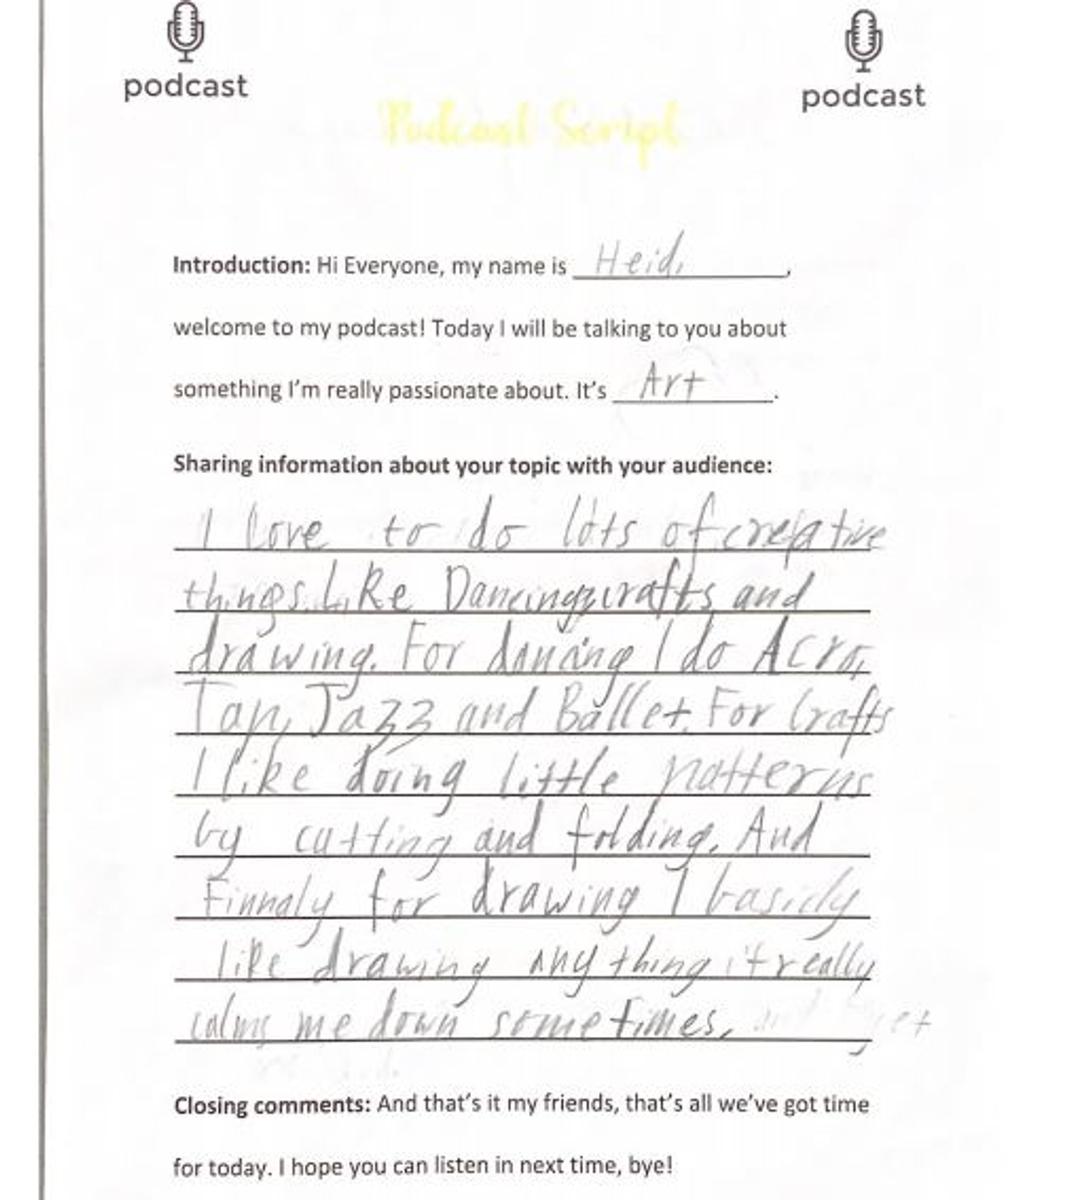 podcast
podcast
Podcast Script
Introduction: Hi Everyone, my name is Heidi,
welcome to my podcast! Today I will be talking to you about
something I'm really passionate about. It's Art.
Sharing information about your topic with your audience:
I love to do lots of creative
things. Like Dancing, crafts and
drawing. For dancing I do Acro,
Tap, Jazz and Ballet. For Crafts
I like doing little patterns
by cutting and folding. And
Finnaly for drawing I basicly
like drawing anything it really
calms me down sometimes.
Closing comments: And that's it my friends, that's all we've got time
for today. I hope you can listen in next time, bye!